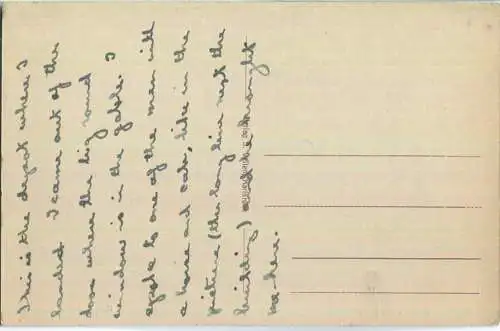 This is the depot where I
landed. I came out of the
door where the big round
window is in the gable. I
spoke to one of the men with
a horse and cab, like in the
picture (the long line next the
building) and he brought
me here.